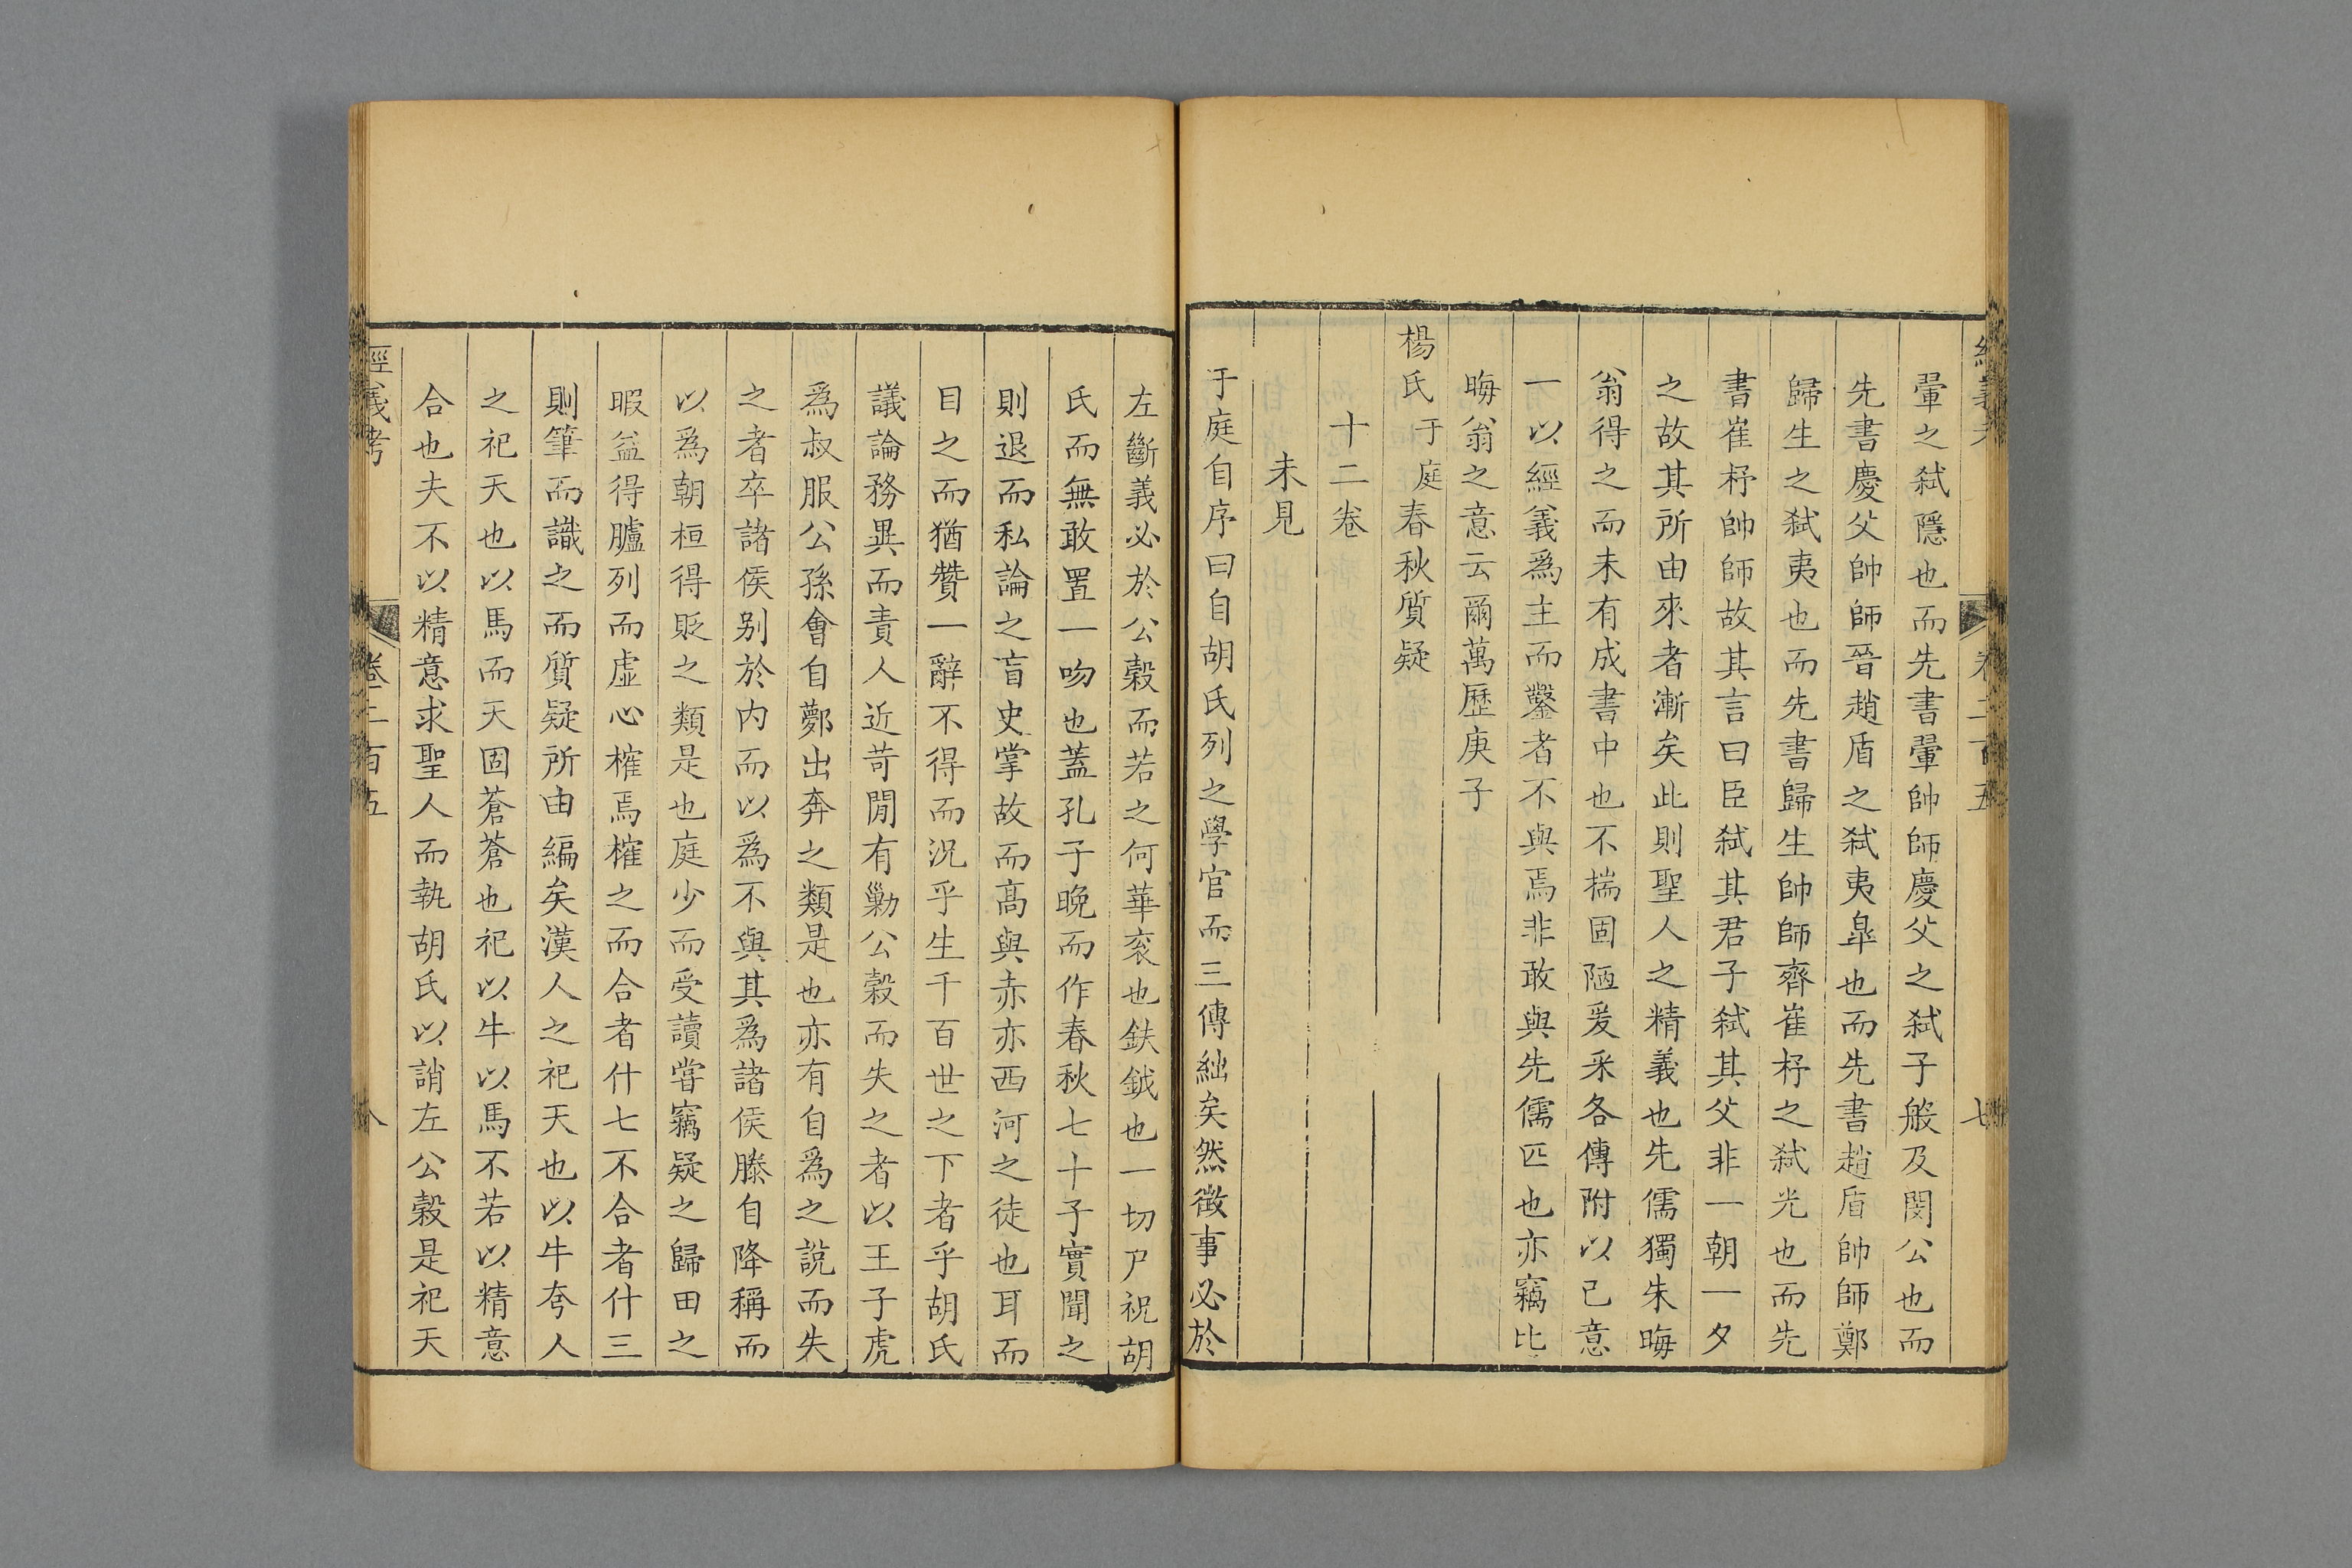 翬之弑隱也而先書翬帥師慶父之弑子般及閔公也而
先書慶父帥師晉趙盾之弑夷臯也而先書趙盾帥師鄭
歸生之弑夷也而先書歸生帥師齊崔杼之弑光也而先
書崔杼帥師故其言曰臣弑其君子弑其父非一朝一夕
之故其所由來者漸矣此則聖人之精義也先儒獨朱晦
翁得之而未有成書中也不揣固陋爰采各傳附以己意
一以經義爲主而鑿者不與焉非敢與先儒匹也亦竊比
晦翁之意云爾萬歷庚子
楊氏于庭春秋質疑
十二卷
未見
于庭自序曰自胡氏列之學官而三傳絀矣然徵事必於
左斷義必於公穀而若之何華袞也鈇鉞也一切尸祝胡
氏而無敢置一吻也蓋孔子晚而作春秋七十子實聞之
則退而私論之盲史掌故而高與赤亦西河之徒也耳而
目之而猶贊一辭不得而況乎生千百世之下者乎胡氏
議論務異而責人近苛閒有勦公穀而失之者以王子虎
爲叔服公孫會自鄸出奔之類是也亦有自爲之說而失
之者卒諸侯别於内而以爲不與其爲諸侯滕自降稱而
以爲朝桓得貶之類是也庭少而受讀嘗竊疑之歸田之
暇益得臚列而虛心榷焉榷之而合者什七不合者什三
則筆而識之而質疑所由編矣漢人之祀天也以牛夸人
之祀天也以馬而天固蒼蒼也祀以牛以馬不若以精意
合也夫不以精意求聖人而執胡氏以誚左公穀是祀天
經義考
卷二百五
八